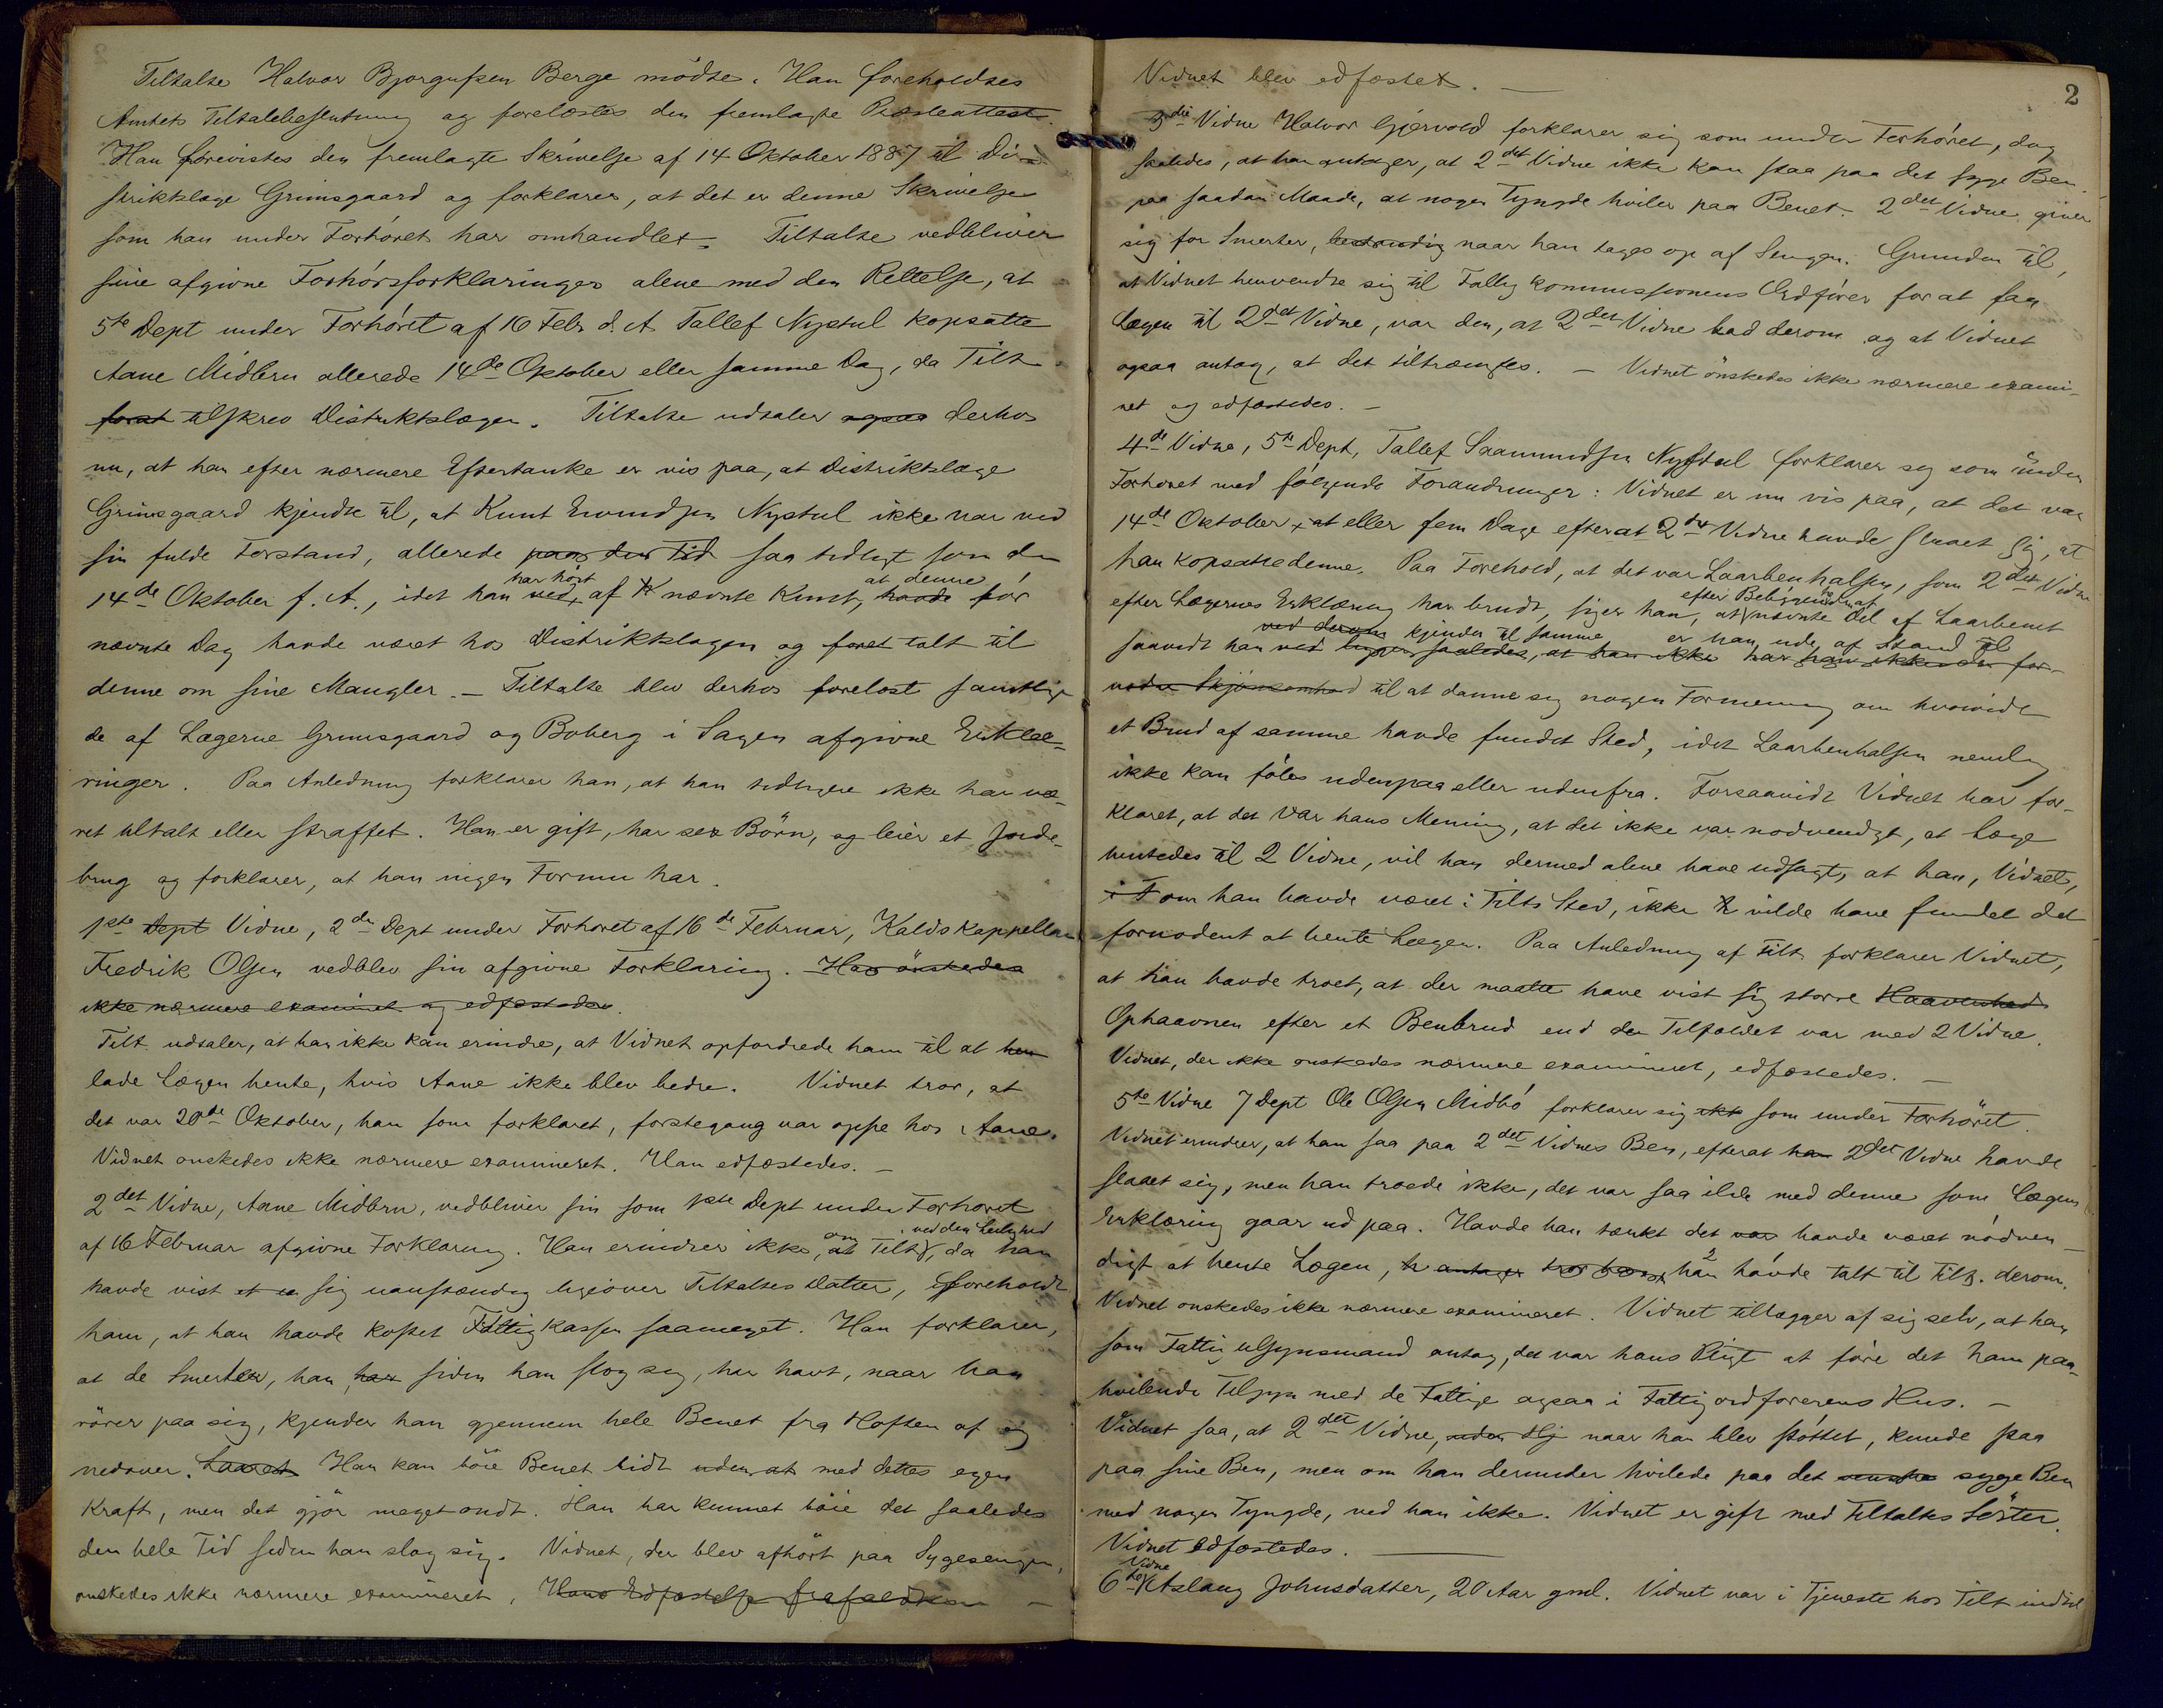 Tiltalte Halvor Bjorgufsen Berge mödte. Han foreholdtes
Amtets Tiltalebeslutning og forelæstes den fremlagte Præsteattest.
Han forevistes den fremlagte Skrivelse af 14 Oktober 1887 til Di-
striktslæge Grimsgaard og forklarer, at det er denne Skrivelse
som han under Forhöret har omhandlet. Tiltalte vedbliver
sine afgivne Forhörsforklaringer alene med den Rettelse, at
5te Dept under Forhöret af 16 Febr d. A. Tallef Nystul kopsatte
Aane Midbru allerede 14de Oktober eller samme Dag, da Tilt
først tilskrev Distriktslægen. Tiltalte udtaler ogsaa derhos
nu, at han efter nærmere Eftertanke er vis paa, at Distriktslæge
Grimsgaard kjendte til, at Knut Eivindsen Nystul ikke var ved
sin fulde Forstand, allerede paa den Tid saa tidligt som den
14de Oktober f. A., idet han ved har hört af K nævnte Knut, havde at denne för
nævnte Dag havde været hos Distriktslægen og foret talt til
denne om sine Mangler. — Tiltalte blev derhos forelæst samtlige
de af Lægerne Grimsgaard og Boberg i Sagen afgivne Erklæ-
ringer. Paa Anledning forklarer han, at han tidligere ikke har væ-
ret tiltalt eller straffet. Han er gift, har sex Börn, og leier et Jorde-
brug og forklarer, at han ingen Formue har.
1ste Dept Vidne, 2den Dept under Forhöret af 16de Februar, Kaldskappellan
Fredrik Olsen vedblev sin afgivne Forklaring. Han önskedes
ikke nærmere examinet og edfæstedes.
Tilt. udtaler, at han ikke kan erindre, at Vidnet opfordrede ham til at hen
lade Lægen hente, hvis Aane ikke blev bedre. Vidnet tror, at
det var 20de Oktober, han som forklaret, förstegang var oppe hos Aane.
Vidnet önskedes ikke nærmere examineret. Han edfæstedes. —
2det Vidne, Aane Midbru, vedbliver sin som 1ste Dept under Forhöret
af 16 Februar afgivne Forklaring. Han erindrer ikke, at om Tilt, ved den Leilighed da han
havde vist et u sig uanstændig ligeover Tiltaltes Datter, foreholdt
ham, at han havde kostet Fattigkassen saameget. Han forklarer,
at de Smerter, han har siden han slog sig, har havt, naar han
rörer paa sig, kjender han gjennem hele Benet fra Hoften af og
nedover. Laaret Han kan böie Benet lidt uden at med dettes egen
Kraft, men det gjör meget ondt. Han har kunnet böie det saaledes
den hele Tid siden han slog sig. Vidnet, der blev afhört paa Sygesengen,
önskedes ikke nærmere examineret, Hans Edfæstelse frafaldtes —
2
Vidnet blev edfæstet. —
3die Vidne Halvor Gjervold forklarer sig som under Forhöret, dog
saaledes, at han antager, at 2det Vidne ikke kan staa paa det syge Ben
paa saadan Maade, at nogen Tyngde hviler paa Benet. 2det Vidne giver
sig for Smerter, bestandig naar han tages op af Sengen. Grunden til,
at Vidnet henvendte sig til Fattigkommissionens Ordförer for at faa
Lægen til 2det Vidne, var den, at 2det Vidne bad derom og at Vidnet
ogsaa antog, at det tiltrængtes. — Vidnet önskedes ikke nærmere exami-
net og edfæstedes. —
4de Vidne, 5te Dept, Tallef Saamundsen Nystul forklarer sig som under
Forhöret med fölgende Forandringer: Vidnet er nu vis paa, at det var
14de Oktober, at eller fem Dage efterat 2det Vidne havde slaaet sig, at
han kopsatte denne. Paa Forehold, at det var Laarbenhalsen, som 2det Vidne
efter Lægernes Erklæring har brudt, siger han, at efter Belægenheden af nævnte Del af Laarbenet
saavidt han ved derom kjender til samme, er han ude af Stand til
til at danne sig nogen Formening om hvorvidt
et Brud af samme havde fundet Sted, idet Laarbenhalsen nemlig
ikke kan föles udenpaa eller udenfra. Forsaavidt Vidnet har for-
klaret, at det var hans Mening, at det ikke var nödvendigt, at Læge
hentedes til 2 Vidne, vil han dermed alene have udsagt, at han, Vidnet,
i T om han havde været i Tilts Sted, ikke vilde have fundet det
fornödent at hente Lægen. Paa Anledning af Tilt forklarer Vidnet,
at han havde troet, at der maatte have vist sig större Haavenhed
Ophaavnen efter et Benbrud end der Tilfældet var med 2 Vidne.
Vidnet, der ikke önskedes nærmere examineret, edfæstedes. —
5te Vidne 7 Dept Ole Olsen Midbö forklarer sig ikke som under Forhöret.
Vidnet erindrer, at han saa paa 2det Vidnes Ben, efterat han 2det Vidne havde
slaaet sig, men han troede ikke, det var saa ilde med denne som Lægens
Erklæring gaar ud paa. Havde han tænkt det var havde været nödven-
digt at hente Lægen, han havde talt til Tilt. derom.
Vidnet önskedes ikke nærmere examineret. Vidnet tillægger af sig selv, at han
som Fattigtilsynsmand antog, det var hans Pligt at före det ham paa-
hvilende Tilsyn med de Fattige ogsaa i Fattigordförerens Hus. —
Vidnet saa, at 2det Vidne, uden Hj naar han blev stöttet, kunde staa
paa sine Ben, men om han derunder hvilede paa det venstre syge Ben
med nogen Tyngde, ved han ikke. Vidnet er gift med Tiltaltes Söster.
Vidnet edfæstedes. —
6te Vidne Aslaug Johnsdatter, 20 Aar gml. Vidnet var i Tjeneste hos Tilt indtil